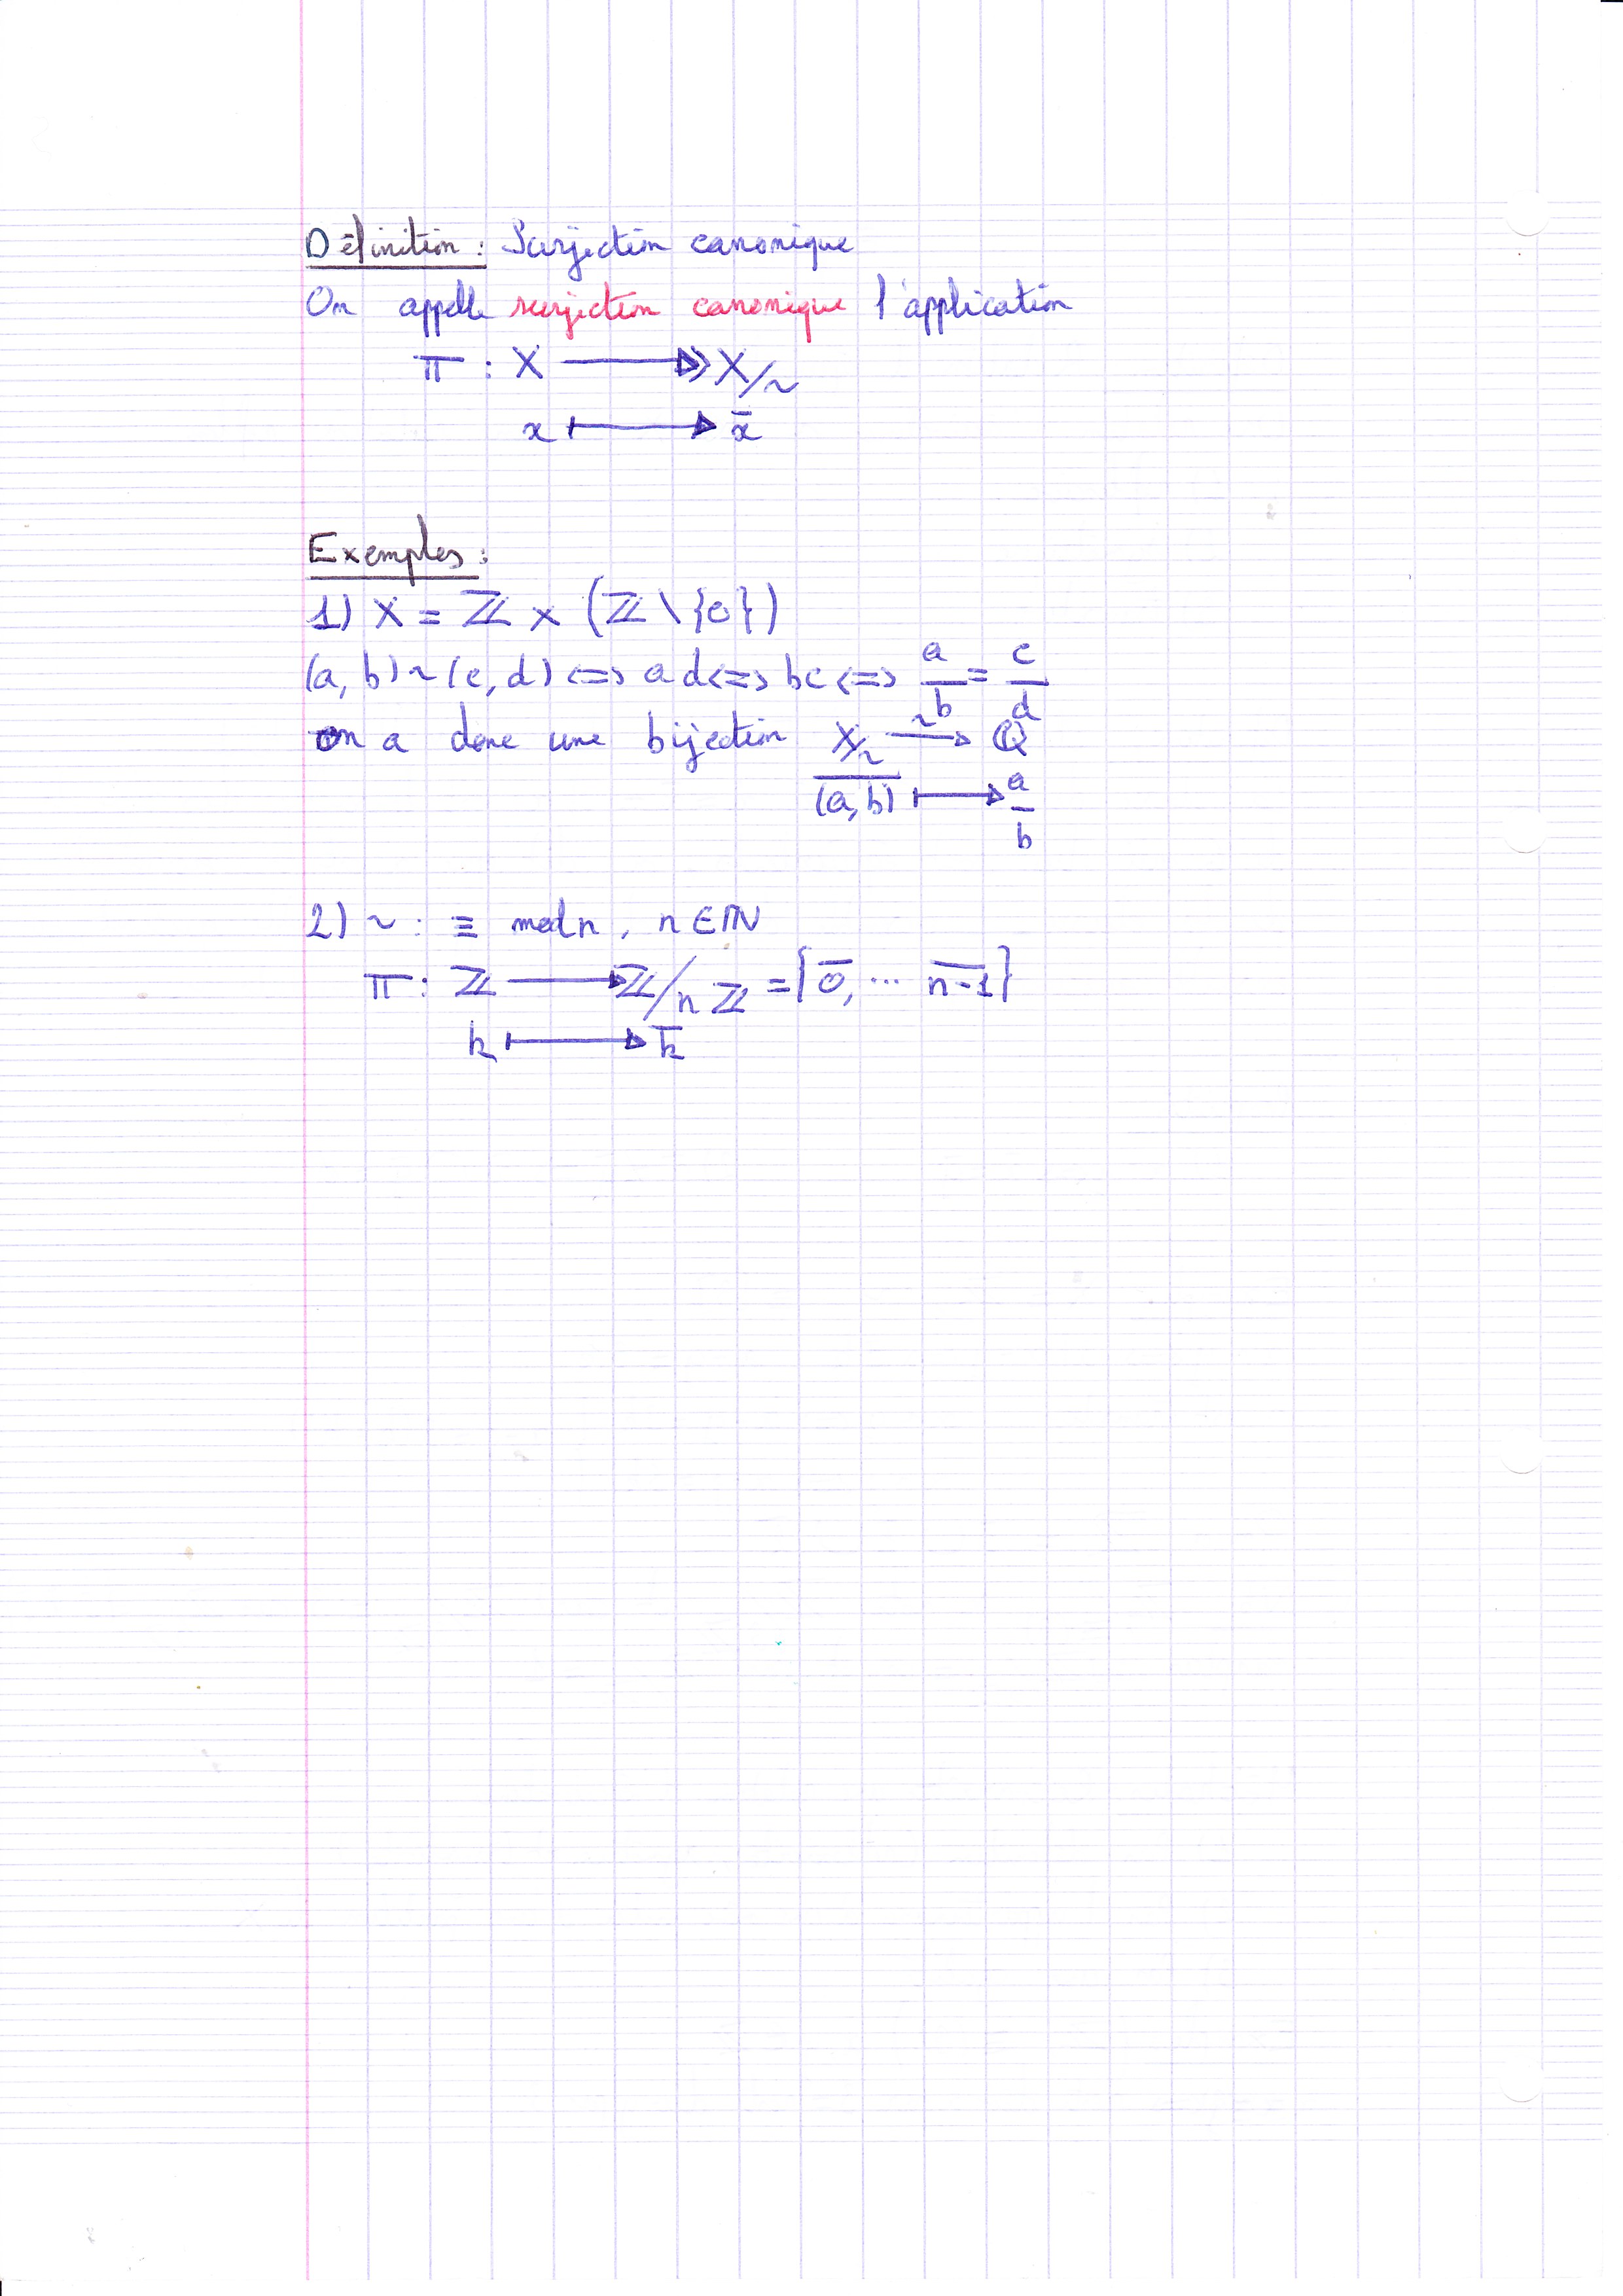 Définition : Surjection canonique
On appelle surjection canonique l'application
π : X ↠ X/~
x ⟼ x̄
Exemples :
1) X = ℤ × (ℤ \ {0})
(a, b) ~ (c, d) <=> ad <=> bc <=> a/b = c/d
on a donc une bijection X/~ ⥲ ℚ
\overline{(a, b)} ⟼ a/b
2) ~ : ≡ mod n, n ∈ ℕ
π : ℤ ⟶ ℤ/nℤ = {\overline{0}, ... \overline{n-1}}
k ⟼ \overline{k}